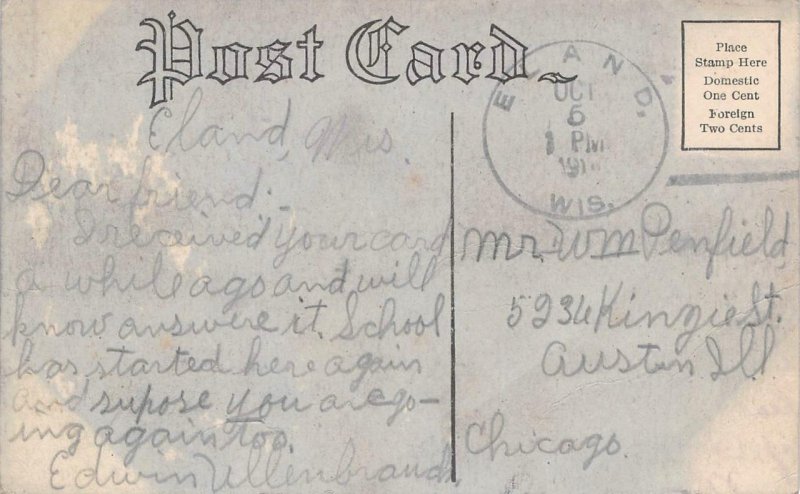 Post Card
Place
Stamp Here
Domestic
One Cent
Foreign
Two Cents
ELAND, WIS.
OCT
6
1 PM
Eland, Wis.
Dear friend:-
I received your card
a while ago and will
know answere it. School
has started here again
and supose you are go-
ing again too.
Edwin Ullenbrauch
Mr. Wm Penfield,
5234 Kingie St.
Austin Ill
Chicago.